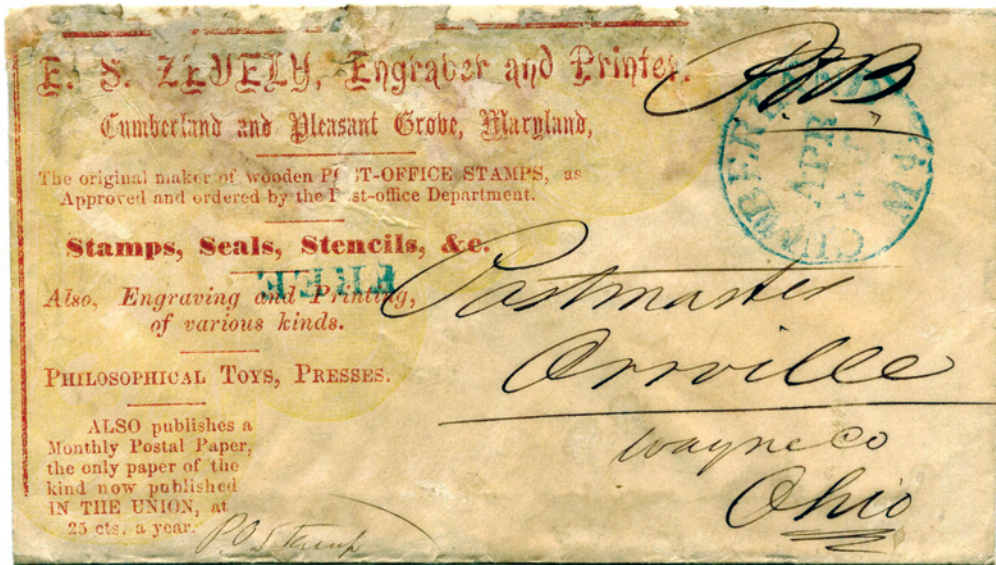 E. S. ZEVELY, Engraver and Printer.
Cumberland and Pleasant Grove, Maryland,
The original maker of wooden POST-OFFICE STAMPS, as
Approved and ordered by the Post-office Department.
Stamps, Seals, Stencils, &c.
FREE
Also, Engraving and Printing,
of various kinds.
PHILOSOPHICAL TOYS, PRESSES.
ALSO publishes a
Monthly Postal Paper,
the only paper of the
kind now published
IN THE UNION, at
25 cts. a year.
P.O. Stamp
POB
CUMBERLAND Md
APR
Postmaster
Orrville
Wayne Co
Ohio